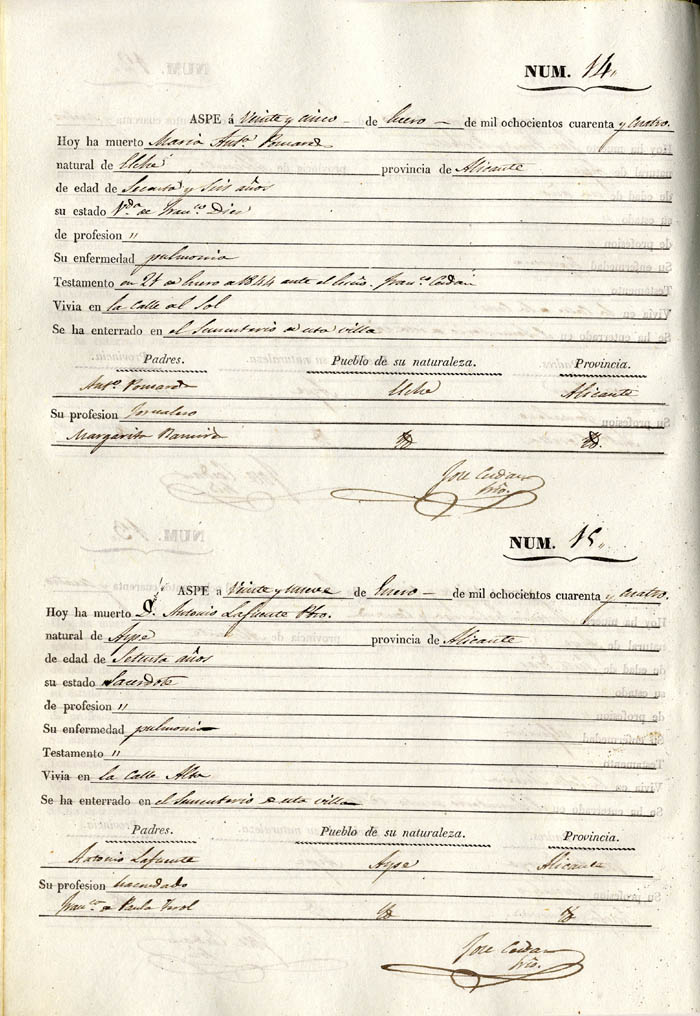 NUM. 14.
ASPE á Veinte y cinco de Enero de mil ochocientos cuarenta y Cuatro.
Hoy ha muerto Maria Antª.
natural de Elche provincia de Alicante
de edad de Sesenta y Seis años
su estado Vda. de Franco. Dies
de profesion "
Su enfermedad pulmonia
Testamento en de Enero de 1844 ante el Franco.
Vivia en la Calle del Sol
Se ha enterrado en el Sementerio de esta villa
Padres. Pueblo de su naturaleza. Provincia.
Anto. Elche Alicante
Su profesion Jornalero
Margarita Id Id.
Jose
NUM. 15.
ASPE á Veinte y nueve de Enero de mil ochocientos cuarenta y Cuatro.
Hoy ha muerto D. Antonio Lafuente Pbro.
natural de Aspe provincia de Alicante
de edad de Setenta años
su estado Sacerdote
de profesion "
Su enfermedad pulmonia
Testamento "
Vivia en la Calle Alta
Se ha enterrado en el Sementerio de esta villa
Padres. Pueblo de su naturaleza. Provincia.
Antonio Lafuente Aspe Alicante
Su profesion hacendado
Franca. de Paula Id Id
Jose